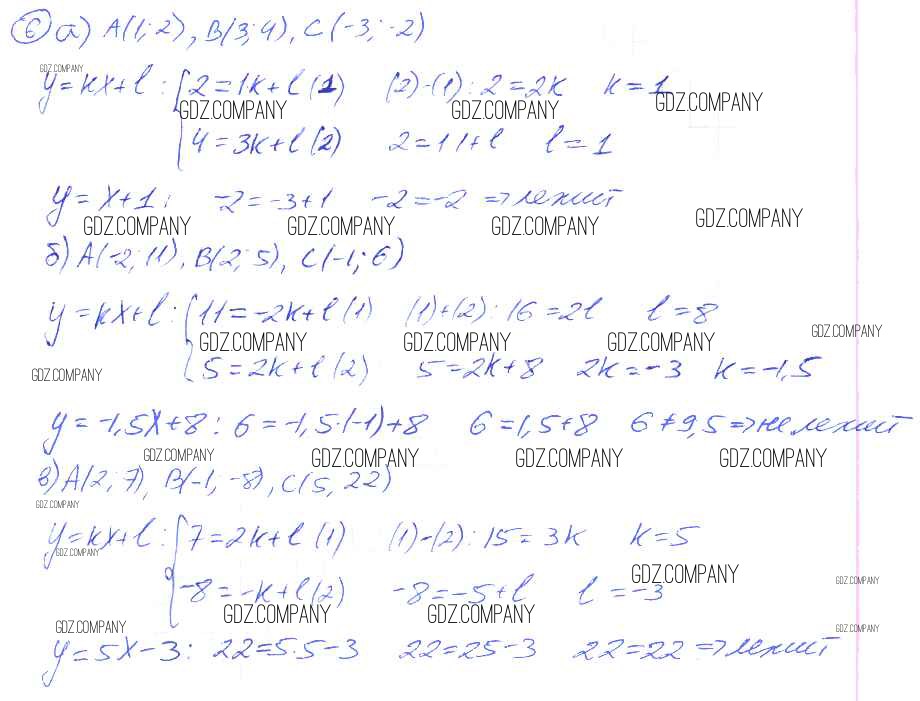 6 а) A(1; 2), B(3; 4), C(-3; -2)
GDZ.COMPANY
y=kx+l: { 2=1k+l (1) (2)-(1): 2=2k k=1
GDZ.COMPANY GDZ.COMPANY GDZ.COMPANY
4=3k+l (2) 2=1+l l=1
y=x+1: -2=-3+1 -2=-2 => лежит
GDZ.COMPANY GDZ.COMPANY GDZ.COMPANY GDZ.COMPANY
б) A(-2; 11), B(2; 5), C(-1; 6)
y=kx+l: { 11=-2k+l (1) (1)+(2): 16=2l l=8
GDZ.COMPANY GDZ.COMPANY GDZ.COMPANY GDZ.COMPANY
GDZ.COMPANY
5=2k+l (2) 5=2k+8 2k=-3 k=-1,5
y=-1,5x+8: 6=-1,5·(-1)+8 6=1,5+8 6≠9,5 => не лежит
GDZ.COMPANY GDZ.COMPANY GDZ.COMPANY GDZ.COMPANY
в) A(2, 7), B(-1, -8), C(5, 22)
GDZ.COMPANY
y=kx+l: { 7=2k+l (1) (1)-(2): 15=3k k=5
GDZ.COMPANY GDZ.COMPANY GDZ.COMPANY
-8=-k+l (2) -8=-5+l l=-3
GDZ.COMPANY GDZ.COMPANY
GDZ.COMPANY GDZ.COMPANY
y=5x-3: 22=5·5-3 22=25-3 22=22 => лежит